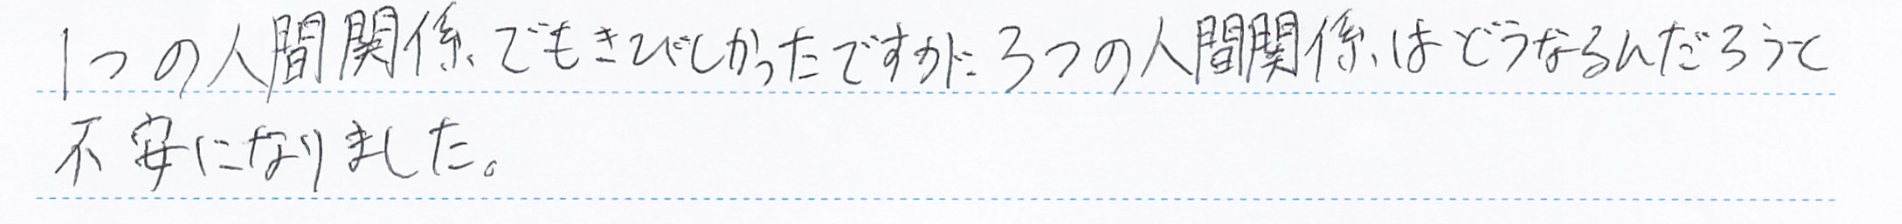 1つの人間関係でもきびしかったですがに3つの人間関係はどうなるんだろうと
不安になりました。